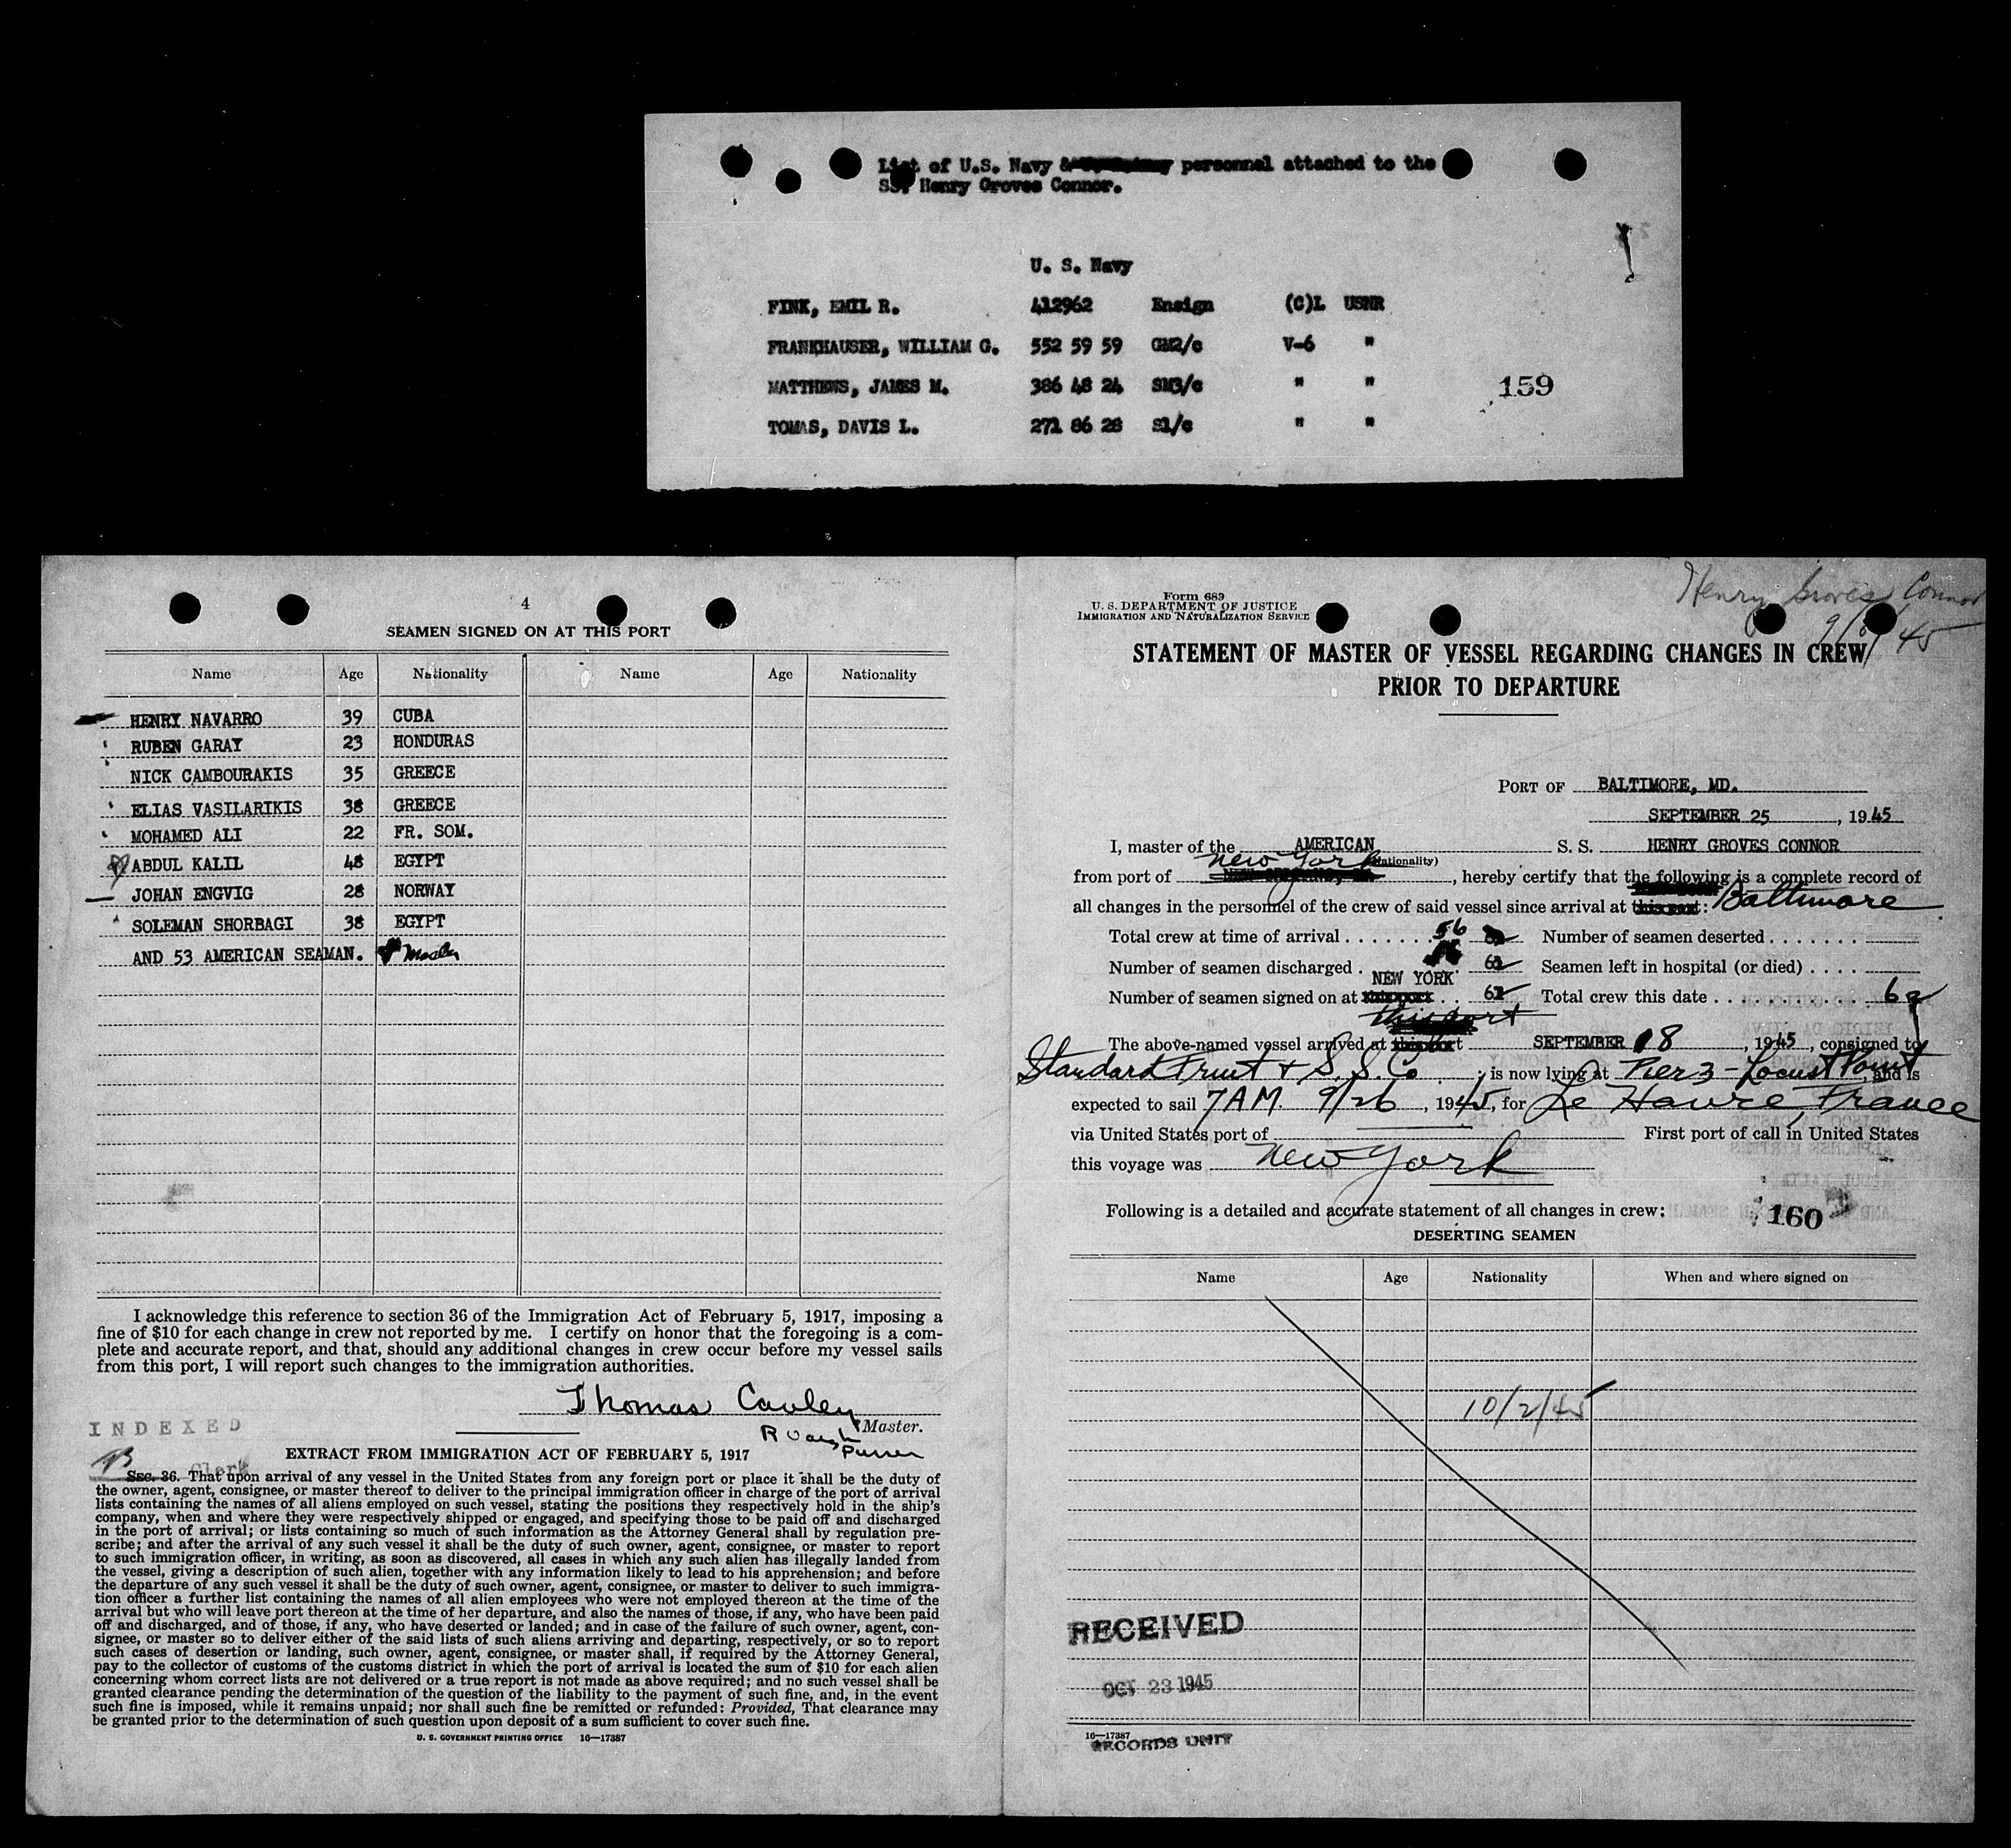 List of U.S. Navy & personnel attached to the
SS. Henry Groves Connor.
U. S. Navy
FINK, EMIL R. 412962 Ensign (C)L USNR
FRANKHAUSER, WILLIAM G. 552 59 59 GM2/c V-6 "
MATTHEWS, JAMES M. 386 48 24 SM3/c " "
159
TOMAS, DAVIS L. 271 86 28 S1/c " "
4
SEAMEN SIGNED ON AT THIS PORT
Name Age Nationality Name Age Nationality
HENRY NAVARRO 39 CUBA
RUBEN GARAY 23 HONDURAS
NICK CAMBOURAKIS 35 GREECE
ELIAS VASILARIKIS 38 GREECE
MOHAMED ALI 22 FR. SOM.
ABDUL KALIL 48 EGYPT
JOHAN ENGVIG 28 NORWAY
SOLEMAN SHORBAGI 38 EGYPT
AND 53 AMERICAN SEAMAN.
I acknowledge this reference to section 36 of the Immigration Act of February 5, 1917, imposing a
fine of $10 for each change in crew not reported by me. I certify on honor that the foregoing is a com-
plete and accurate report, and that, should any additional changes in crew occur before my vessel sails
from this port, I will report such changes to the immigration authorities.
Thomas Cauley
Master.
Purser
INDEXED
Clerk
EXTRACT FROM IMMIGRATION ACT OF FEBRUARY 5, 1917
SEC. 36. That upon arrival of any vessel in the United States from any foreign port or place it shall be the duty of
the owner, agent, consignee, or master thereof to deliver to the principal immigration officer in charge of the port of arrival
lists containing the names of all aliens employed on such vessel, stating the positions they respectively hold in the ship's
company, when and where they were respectively shipped or engaged, and specifying those to be paid off and discharged
in the port of arrival; or lists containing so much of such information as the Attorney General shall by regulation pre-
scribe; and after the arrival of any such vessel it shall be the duty of such owner, agent, consignee, or master to report
to such immigration officer, in writing, as soon as discovered, all cases in which any such alien has illegally landed from
the vessel, giving a description of such alien, together with any information likely to lead to his apprehension; and before
the departure of any such vessel it shall be the duty of such owner, agent, consignee, or master to deliver to such immigra-
tion officer a further list containing the names of all alien employees who were not employed thereon at the time of the
arrival but who will leave port thereon at the time of her departure, and also the names of those, if any, who have been paid
off and discharged, and of those, if any, who have deserted or landed; and in case of the failure of such owner, agent, con-
signee, or master so to deliver either of the said lists of such aliens arriving and departing, respectively, or so to report
such cases of desertion or landing, such owner, agent, consignee, or master shall, if required by the Attorney General,
pay to the collector of customs of the customs district in which the port of arrival is located the sum of $10 for each alien
concerning whom correct lists are not delivered or a true report is not made as above required; and no such vessel shall be
granted clearance pending the determination of the question of the liability to the payment of such fine, and, in the event
such fine is imposed, while it remains unpaid; nor shall such fine be remitted or refunded: Provided, That clearance may
be granted prior to the determination of such question upon deposit of a sum sufficient to cover such fine.
U. S. GOVERNMENT PRINTING OFFICE 16—17387
Henry Groves Connor
Form 689
U. S. DEPARTMENT OF JUSTICE
IMMIGRATION AND NATURALIZATION SERVICE
STATEMENT OF MASTER OF VESSEL REGARDING CHANGES IN CREW
PRIOR TO DEPARTURE
PORT OF BALTIMORE, MD.
SEPTEMBER 25, 1945
I, master of the AMERICAN S. S. HENRY GROVES CONNOR
(Nationality)
from port of New York, hereby certify that the following is a complete record of
all changes in the personnel of the crew of said vessel since arrival at this port: Baltimore
Total crew at time of arrival 56 Number of seamen deserted
Number of seamen discharged Seamen left in hospital (or died)
NEW YORK
Number of seamen signed on at this port Total crew this date
this port
The above-named vessel arrived at this port SEPTEMBER 18, 1945, consigned to
Standard Fruit & S. S. Co, is now lying at Pier 3 - Locust Point, and is
expected to sail 7 AM. 9/26, 1945, for Le Havre, France
via United States port of First port of call in United States
this voyage was New York
Following is a detailed and accurate statement of all changes in crew:
160
DESERTING SEAMEN
Name Age Nationality When and where signed on
10/2/45
RECEIVED
OCT 23 1945
16—17387
RECORDS UNIT